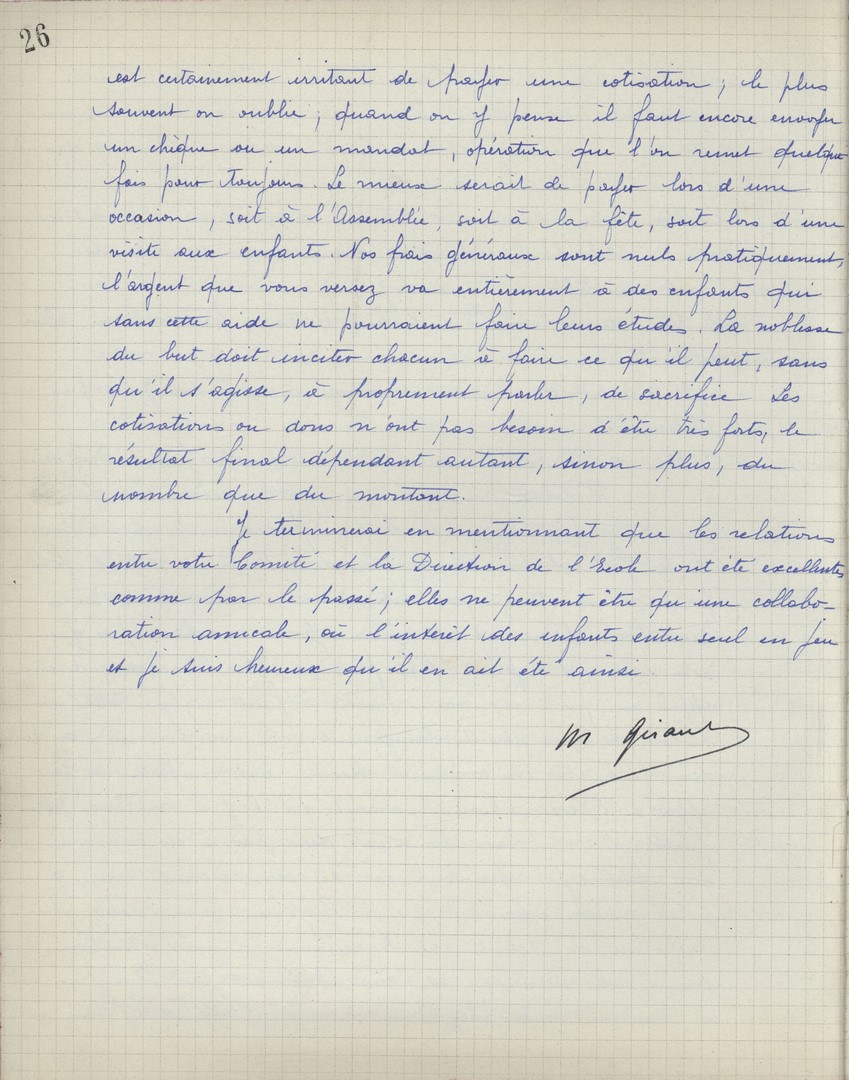 26
est certainement irritant de payer une cotisation ; le plus
souvent on oublie ; quand on y pense il faut encore envoyer
un chèque ou un mandat, opération que l'on remet quelque
fois pour toujours. Le mieux serait de payer lors d'une
occasion, soit à l'Assemblée, soit à la fête, soit lors d'une
visite aux enfants. Nos frais généraux sont nuls pratiquement,
l'argent que vous versez va entièrement à des enfants qui
sans cette aide ne pourraient faire leurs études. La noblesse
du but doit inciter chacun à faire ce qu'il peut, sans
qu'il s'agisse, à proprement parler, de sacrifice Les
cotisations ou dons n'ont pas besoin d'être très forts, le
résultat final dépendant autant, sinon plus, du
nombre que du montant.
Je terminerai en mentionnant que les relations
entre votre Comité et la Direction de l'Ecole ont été excellentes
comme par le passé ; elles ne peuvent être qu'une collabo-
ration amicale, où l'intérêt des enfants entre seul en jeu
et je suis heureux qu'il en ait été ainsi
M Giraud